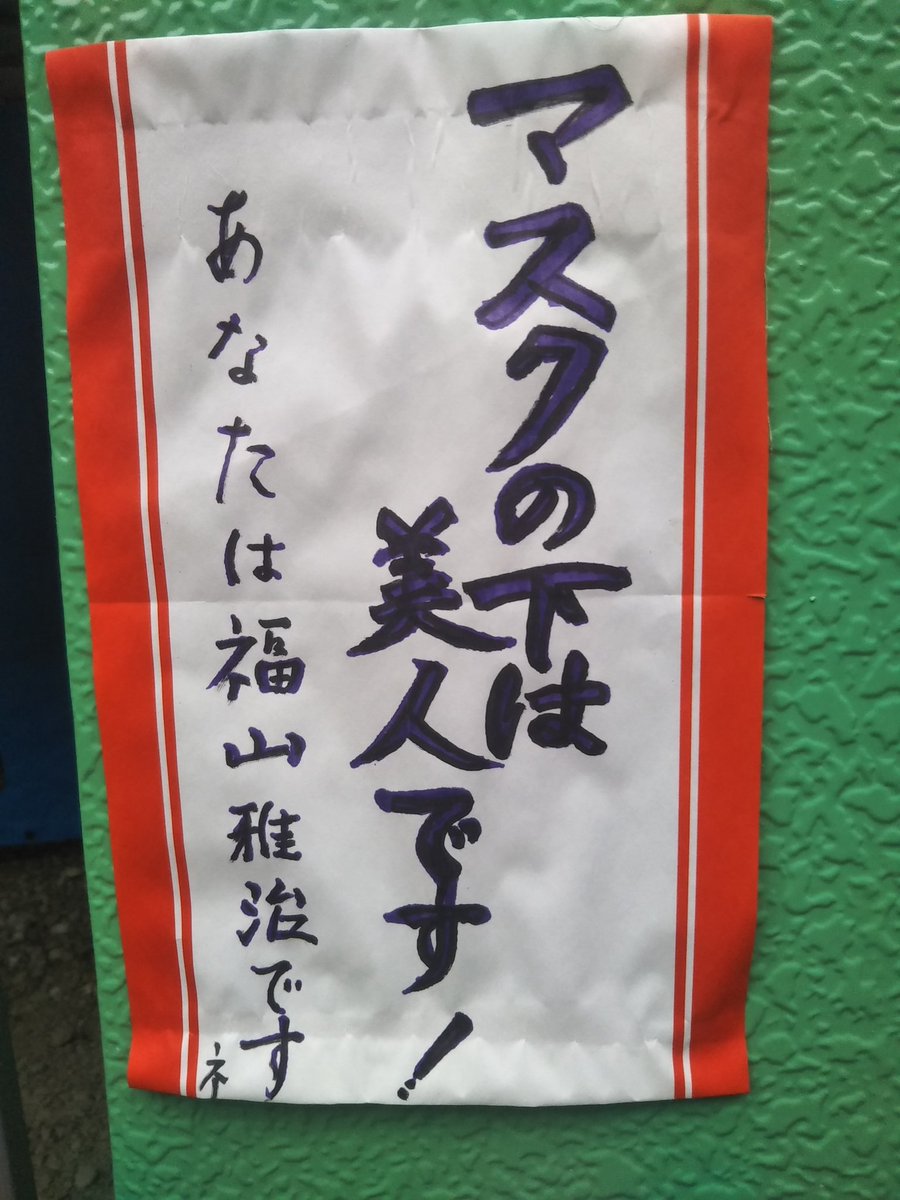 マスクの下は
美人です!
あなたは福山雅治です
ネ